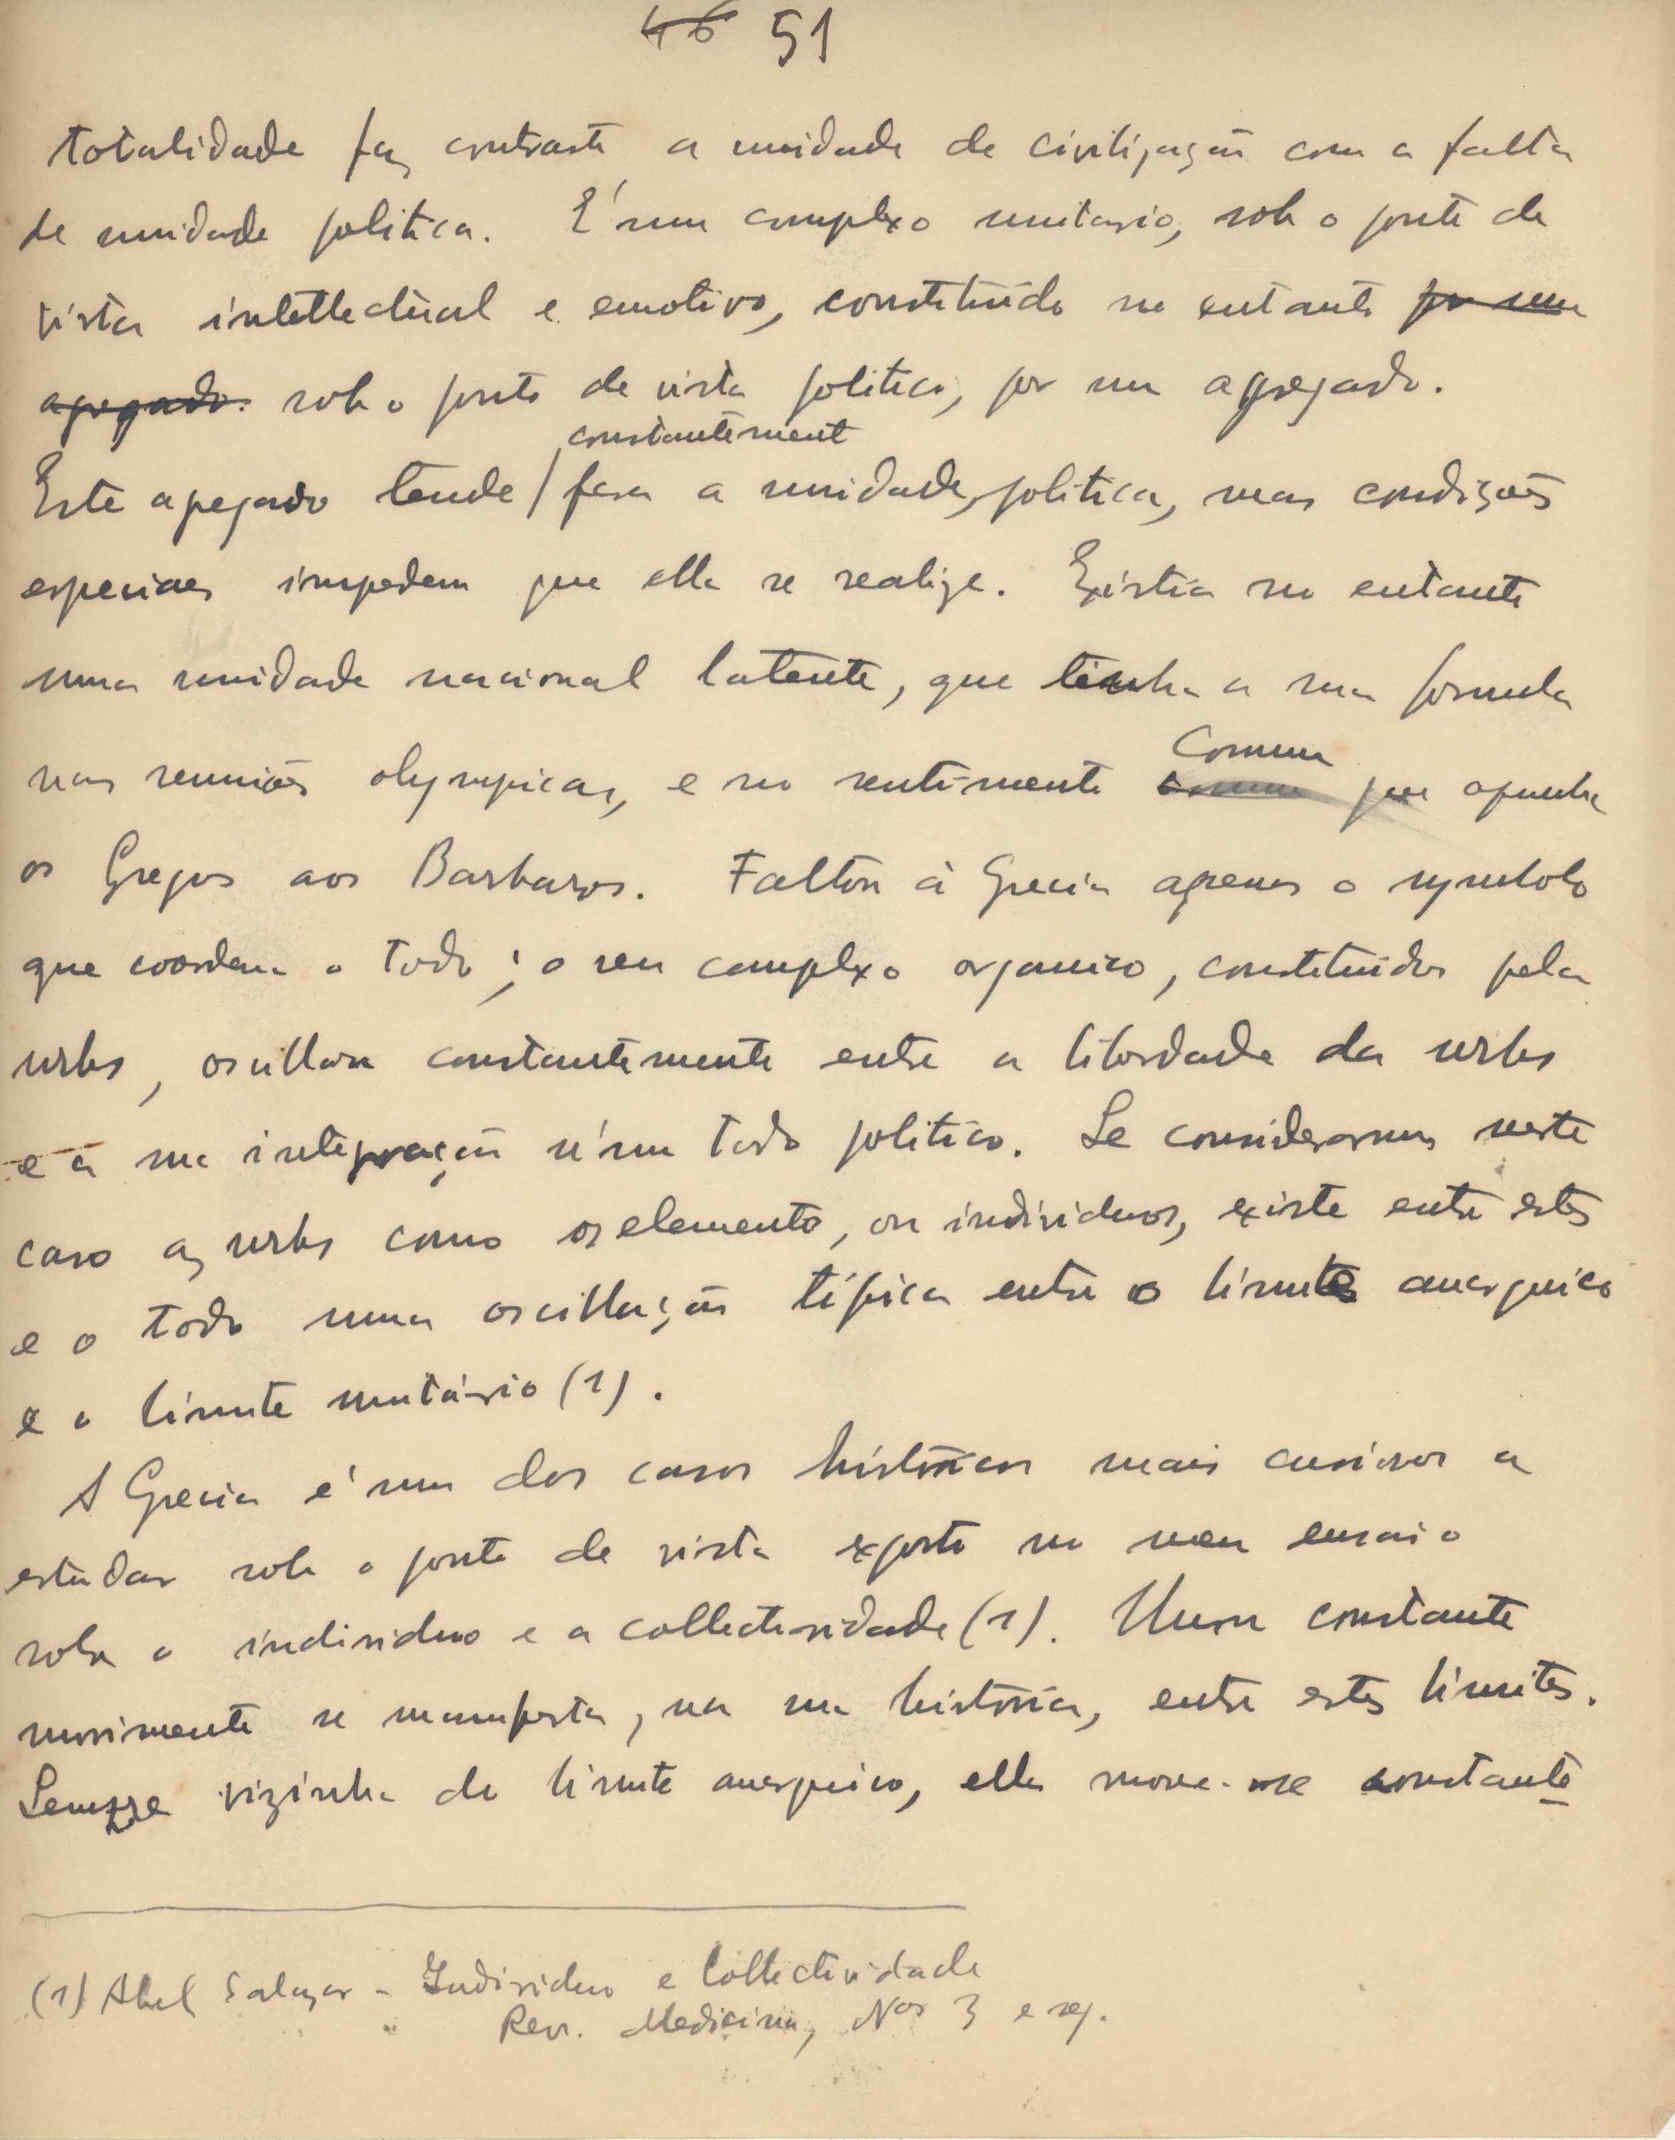 46 51
totalidade faz contraste a unidade de civilização com a falta
de unidade politica. É um complexo unitario, sob o ponto de
vista intellectual e emotivo, constituido no entanto por um
agregado. sob o ponto de vista politico, por um agregado.
constantement
Este agregado tende para a unidade politica, mas condições
especiaes impedem que ella se realize. Existia no entanto
uma unidade nacional latente, que tinha a sua formula
nas reuniões olympicas, e no sentimento
Comum
comum que opunha
os Gregos aos Barbaros. Faltou à Grecia apenas o symbolo
que coordena o todo; o seu complexo organico, constituidos pela
urbs, oscillou constantemente entre a liberdade da urbs
e a sua integração n'um todo politico. Se considerarmos neste
caso as urbs como os elementos, ou individuos, existe entre estes
e o todo uma oscillação típica entre o limite anarquico
e o limite unitário (1).
A Grecia é um dos casos históricos mais curiosos a
estudar sob o ponto de vista exposto no meu ensaio
sobre o individuo e a collectividade (1). Num constante
movimento se manifesta, na sua história, entre estes limites.
Sempre vizinha do limite anarquico, ella move-se constante
(1) Abel Salazar - Individuo e Collectividade
" Rev. Medicina, Nos 3 e seg.